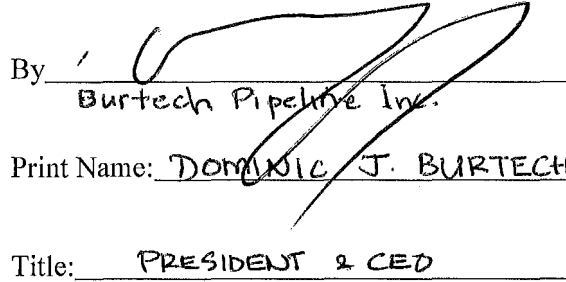 By
Burtech Pipeline Inc.
Print Name: DOMINIC J. BURTECH
Title: PRESIDENT & CEO